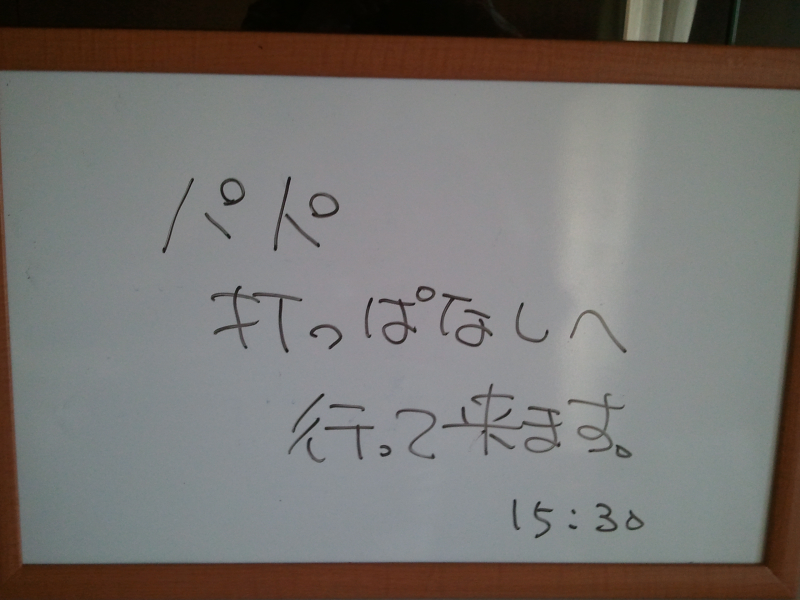 パパ
打っぱなしへ
行って来ます。
15:30